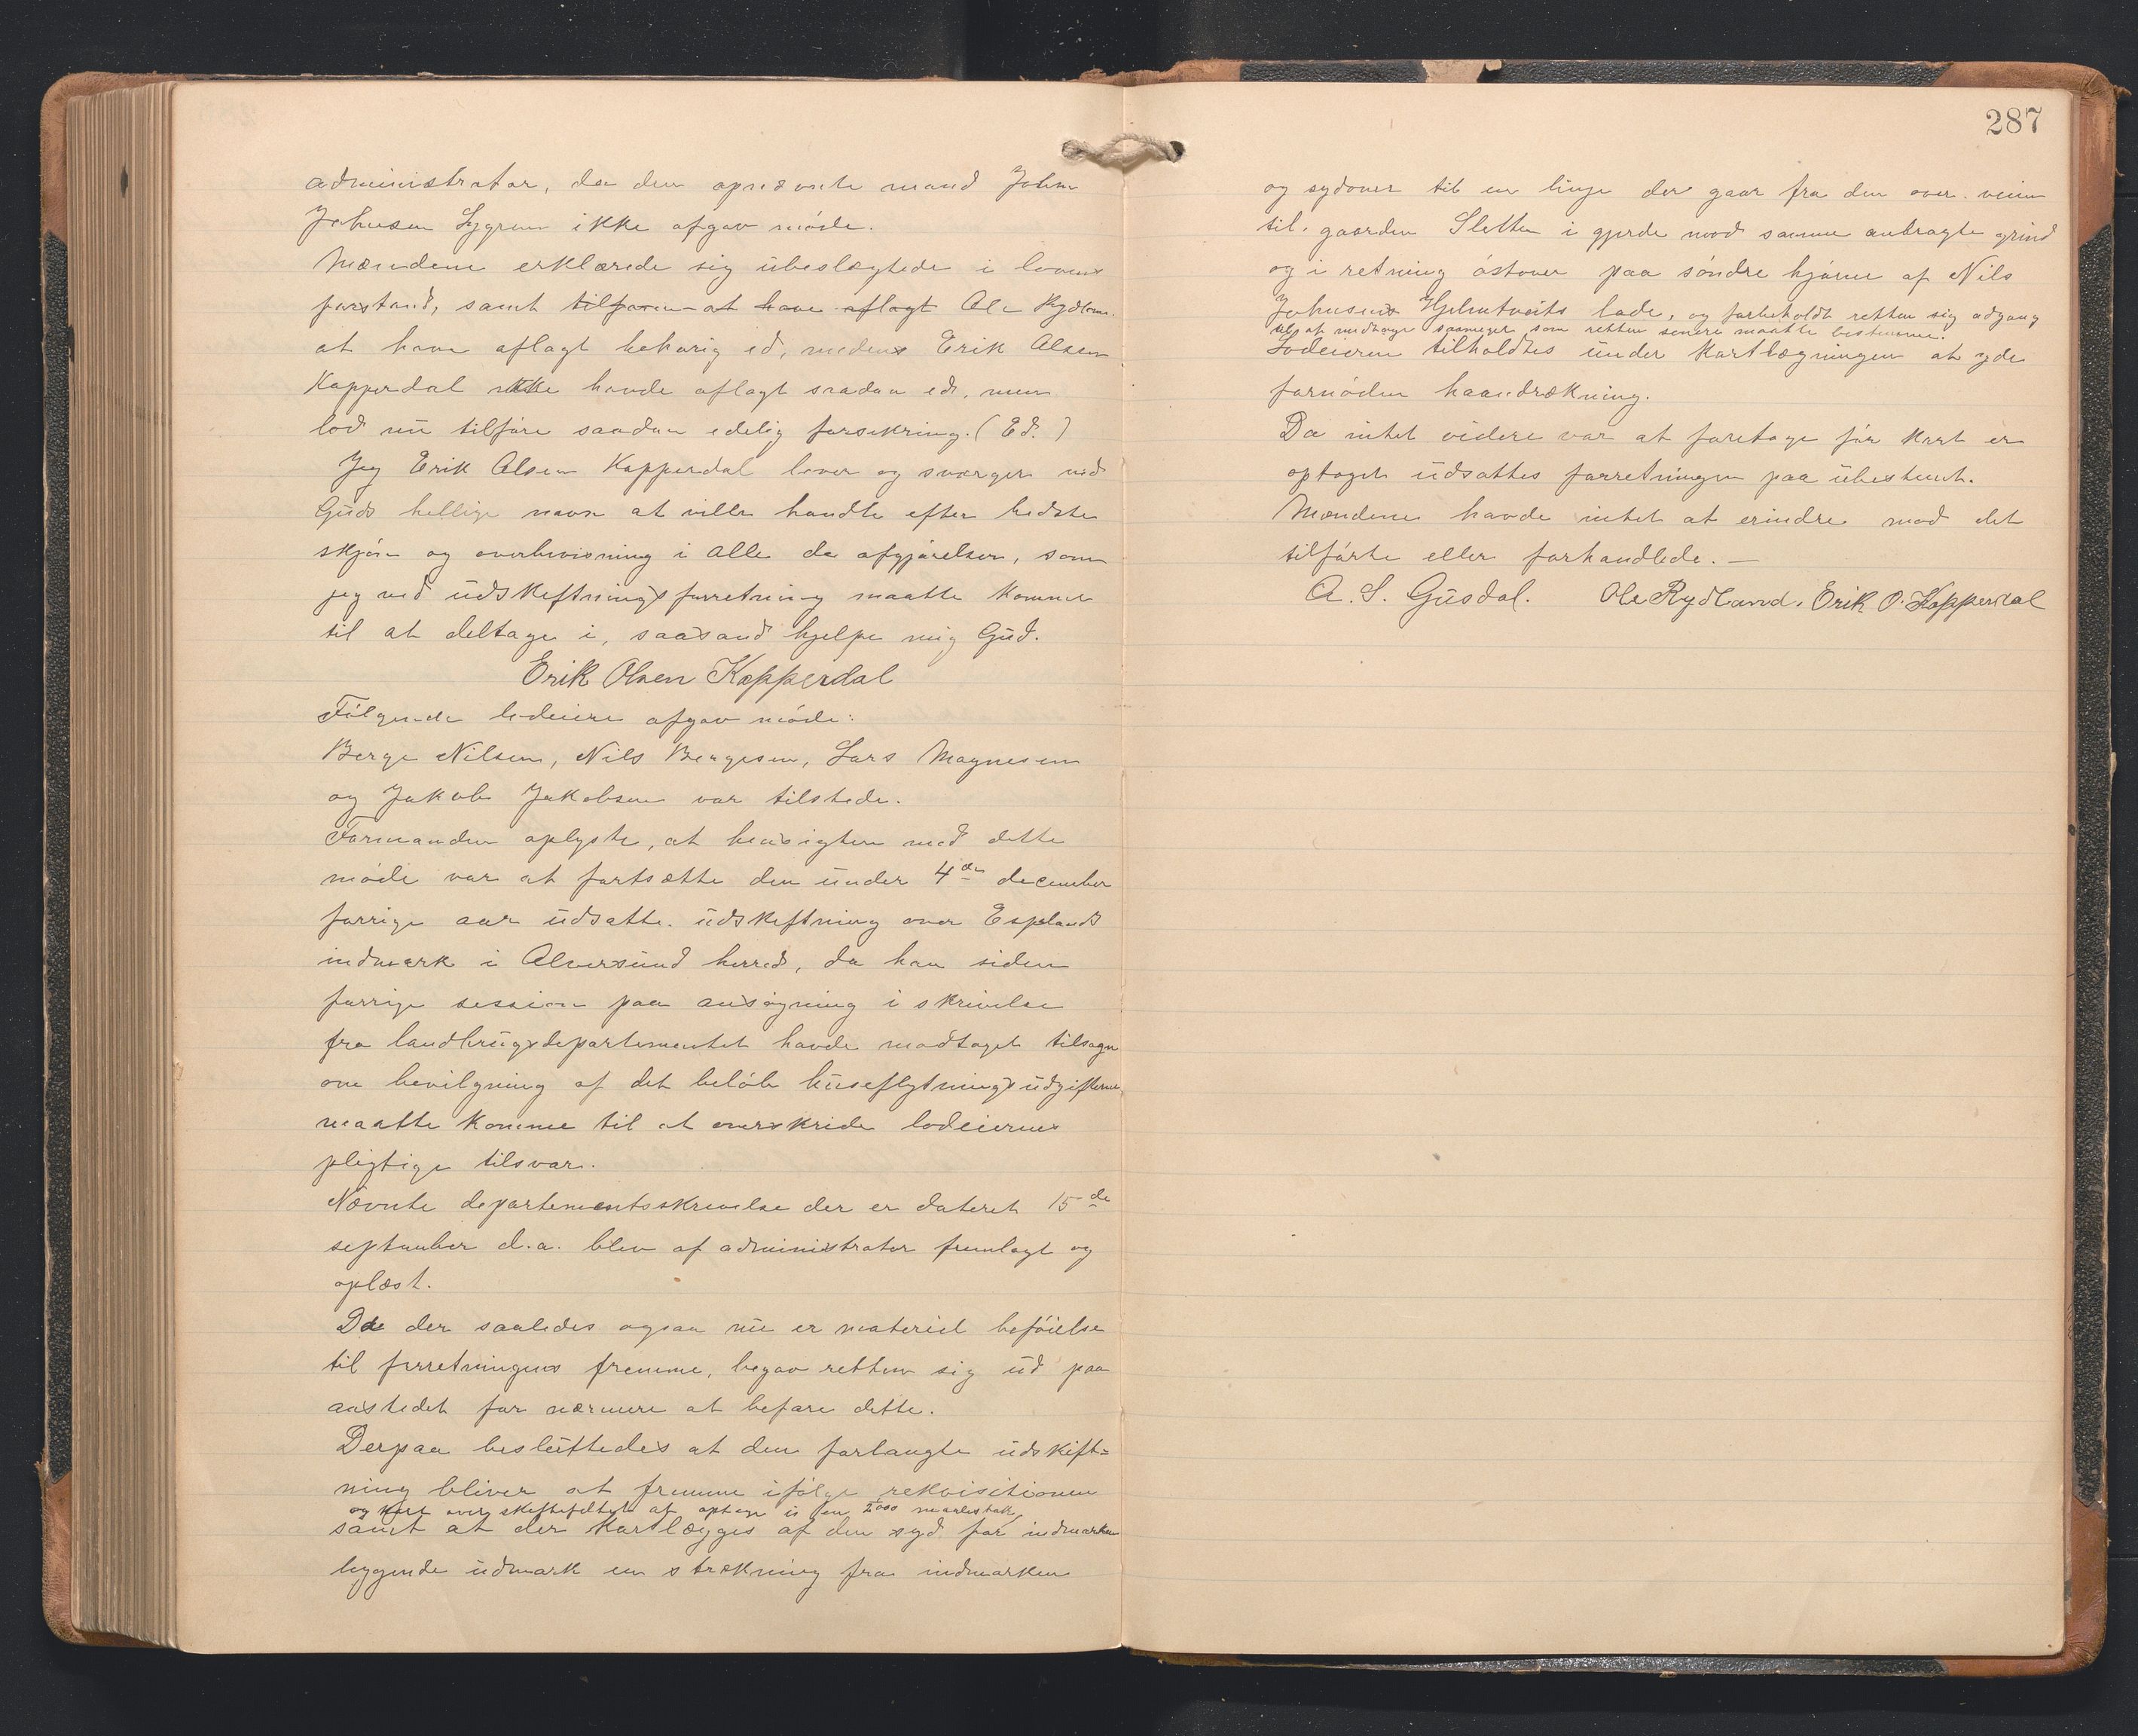 administrator, da den opnævnte mand John
Johnsen Lygren ikke afgav møde.
Mændene erklærede sig ubeslægtede i lovens
forstand, samt tilforn at have aflagt Ole Rydland
at have aflagt behørig ed, medens Erik Olsen
Kopperdal ikke havde aflagt saadan ed, men
lod nu tilføre saadan edelig forsikring. (Ed.)
Jeg Erik Olsen Kopperdal lover og sværger ved
Guds hellige navn at ville handle efter bedste
skjøn og overbevisning i alle de afgjørelser, som
jeg ved udskiftningsforretning maatte komme
til at deltage i, saasand hjelpe mig Gud.
Erik Olsen Kopperdal
Følgende lodeiere afgav møde:
Berge Nilsen, Nils Bergesen, Lars Magnesen
og Jakob Jakobsen var tilstede.
Formanden oplyste, at hensigten med dette
møde var at fortsætte den under 4de december
forrige aar udsatte udskiftning over Esplands
indmark i Alversund herred, da han siden
forrige session paa ansøgning i skrivelse
fra landbrugsdepartementet havde modtaget tilsagn
om bevilgning af det beløb husflytningsudgifterne
maatte komme til at overskride lodeiernes
pligtige tilsvar.
Nævnte departementsskrivelse der er dateret 15de
september d.a. blev af administrator fremlagt og
oplæst.
Da der saaledes ogsaa nu er materiel beføielse
til forretningens fremme, begav retten sig ud paa
aastedet for nærmere at befare dette.
Derpaa besluttedes at den forlangte udskift=
ning bliver at fremme ifølge rekvisitionen
og kart over skiftefeltet at optage i 2000 maalestok,
samt at der kartlægges af den syd for indmarken
liggende udmark en strækning fra indmarken
287
og sydover til en linje der gaar fra den over veien
til gaarden Sletten i gjerde mod samme anbragte grind
og i retning østover paa søndre hjørne af Nils
Johnsens Hjelmtveits lade, og forbeholdt retten sig adgang
til at medtage saameget som retten senere maatte bestemme.
Lodeierne tilholdtes under kartlægningen at yde
fornøden haandrækning.
Da intet videre var at foretage før kart er
optaget udsattes forretningen paa ubestemt.
Mændene havde intet at erindre mod det
tilførte eller forhandlede. —
A. S. Gusdal. Ole Rydland. Erik O. Kopperdal